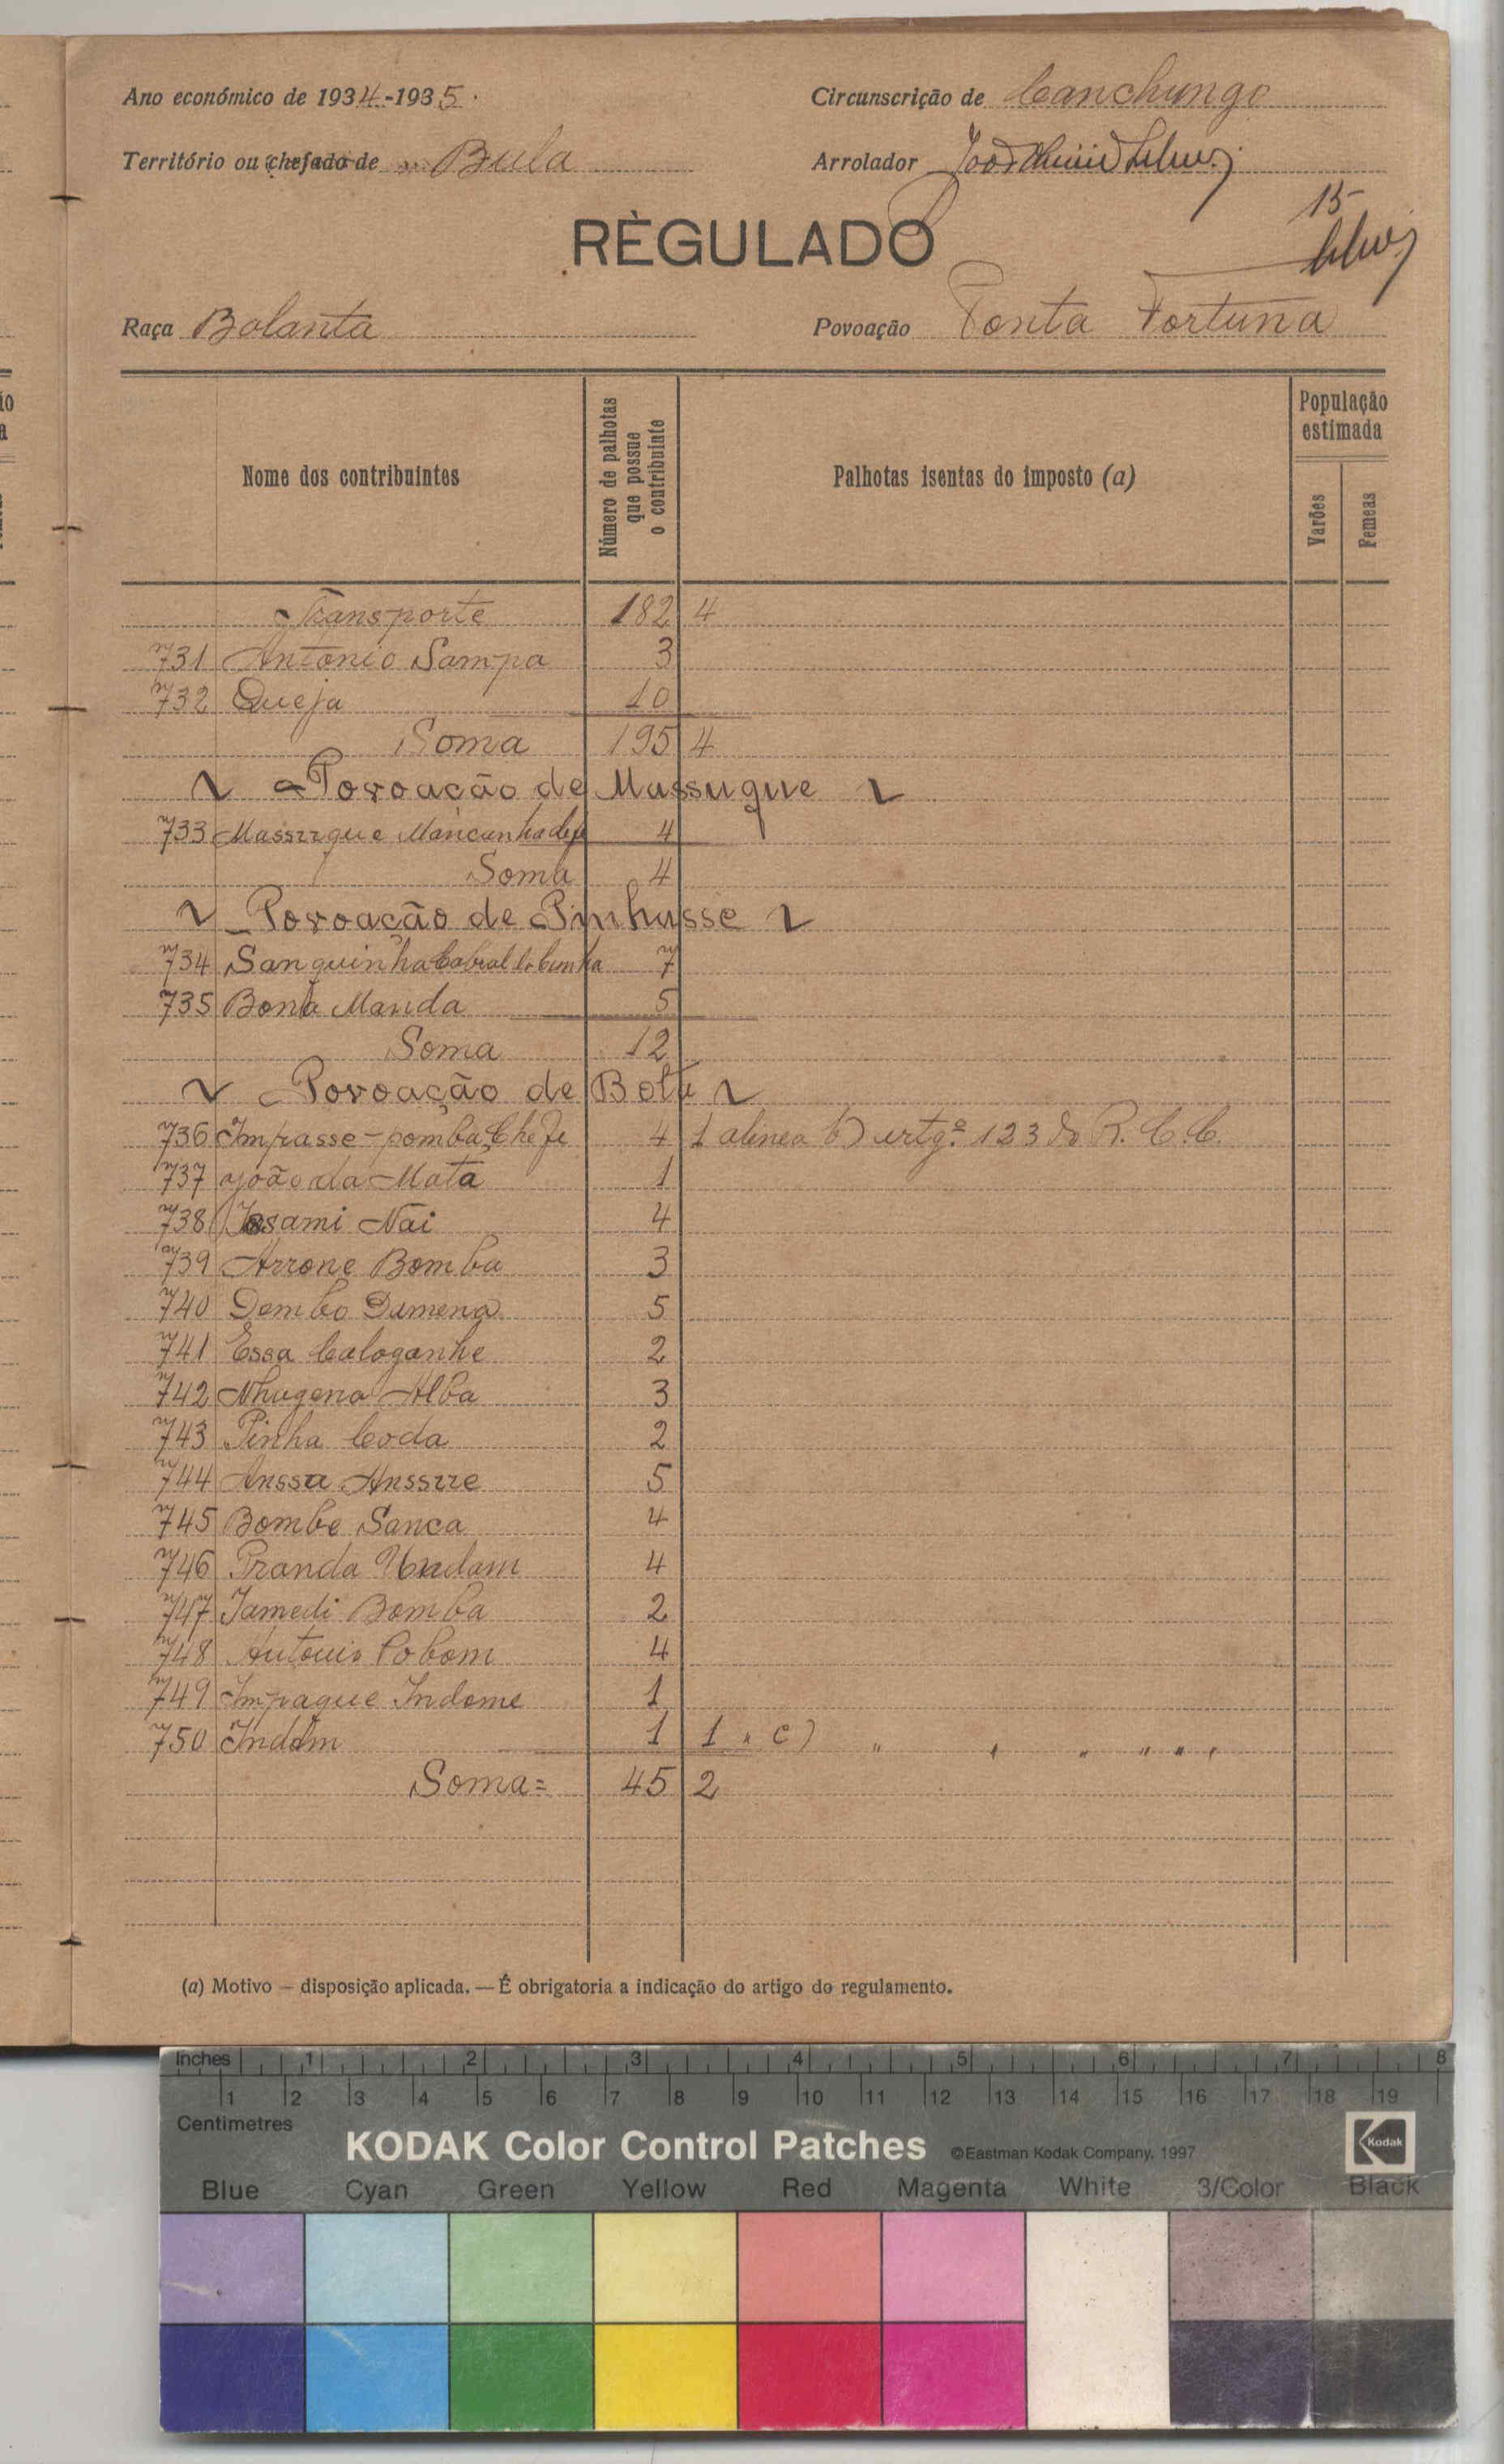 Ano económico de 1934-1935.
Circunscrição de Canchungo
Território ou chefado de Bula
Arrolador
15
RÈGULADO
Raça Balanta
Povoação Ponta Fortuna
Nome dos contribuintes
Número de palhotas que possue o contribuinte
Palhotas isentas do imposto (a)
População estimada
Varões
Femeas
Transporte 182 4
731 António Sampa 3
732 Queja 10
Soma 195 4
Povoação de Massuque
733 Massuque Mancanha 4
Soma 4
Povoação de Pinhasse
734 Sanquinha Cabral da Cunha 7
735 Bona Manda 5
Soma 12
Povoação de Bote
736 Impasse-pomba Chefe 4 1 alinea b) artgº 123 do R. C. C.
737 João da Mata 1
738 Nai 4
739 Arrone Bomba 3
740 Dembo Damena 5
741 Essa Caloganhe 2
742 Nhagena Alba 3
743 Pinha Coda 2
744 Anssa Anssue 5
745 Bombe Sanca 4
746 Pranda 4
747 Jamedi Bomba 2
748 António Cobom 4
749 Impaque Indome 1
750 Indam 1 1 " c) " " " " " "
Soma= 45 2
(a) Motivo — disposição aplicada. — É obrigatoria a indicação do artigo do regulamento.
Inches 1 2 3 4 5 6 7 8
1 2 3 4 5 6 7 8 9 10 11 12 13 14 15 16 17 18 19
Centimetres
KODAK Color Control Patches ©Eastman Kodak Company, 1997 Kodak
Blue Cyan Green Yellow Red Magenta White 3/Color Black